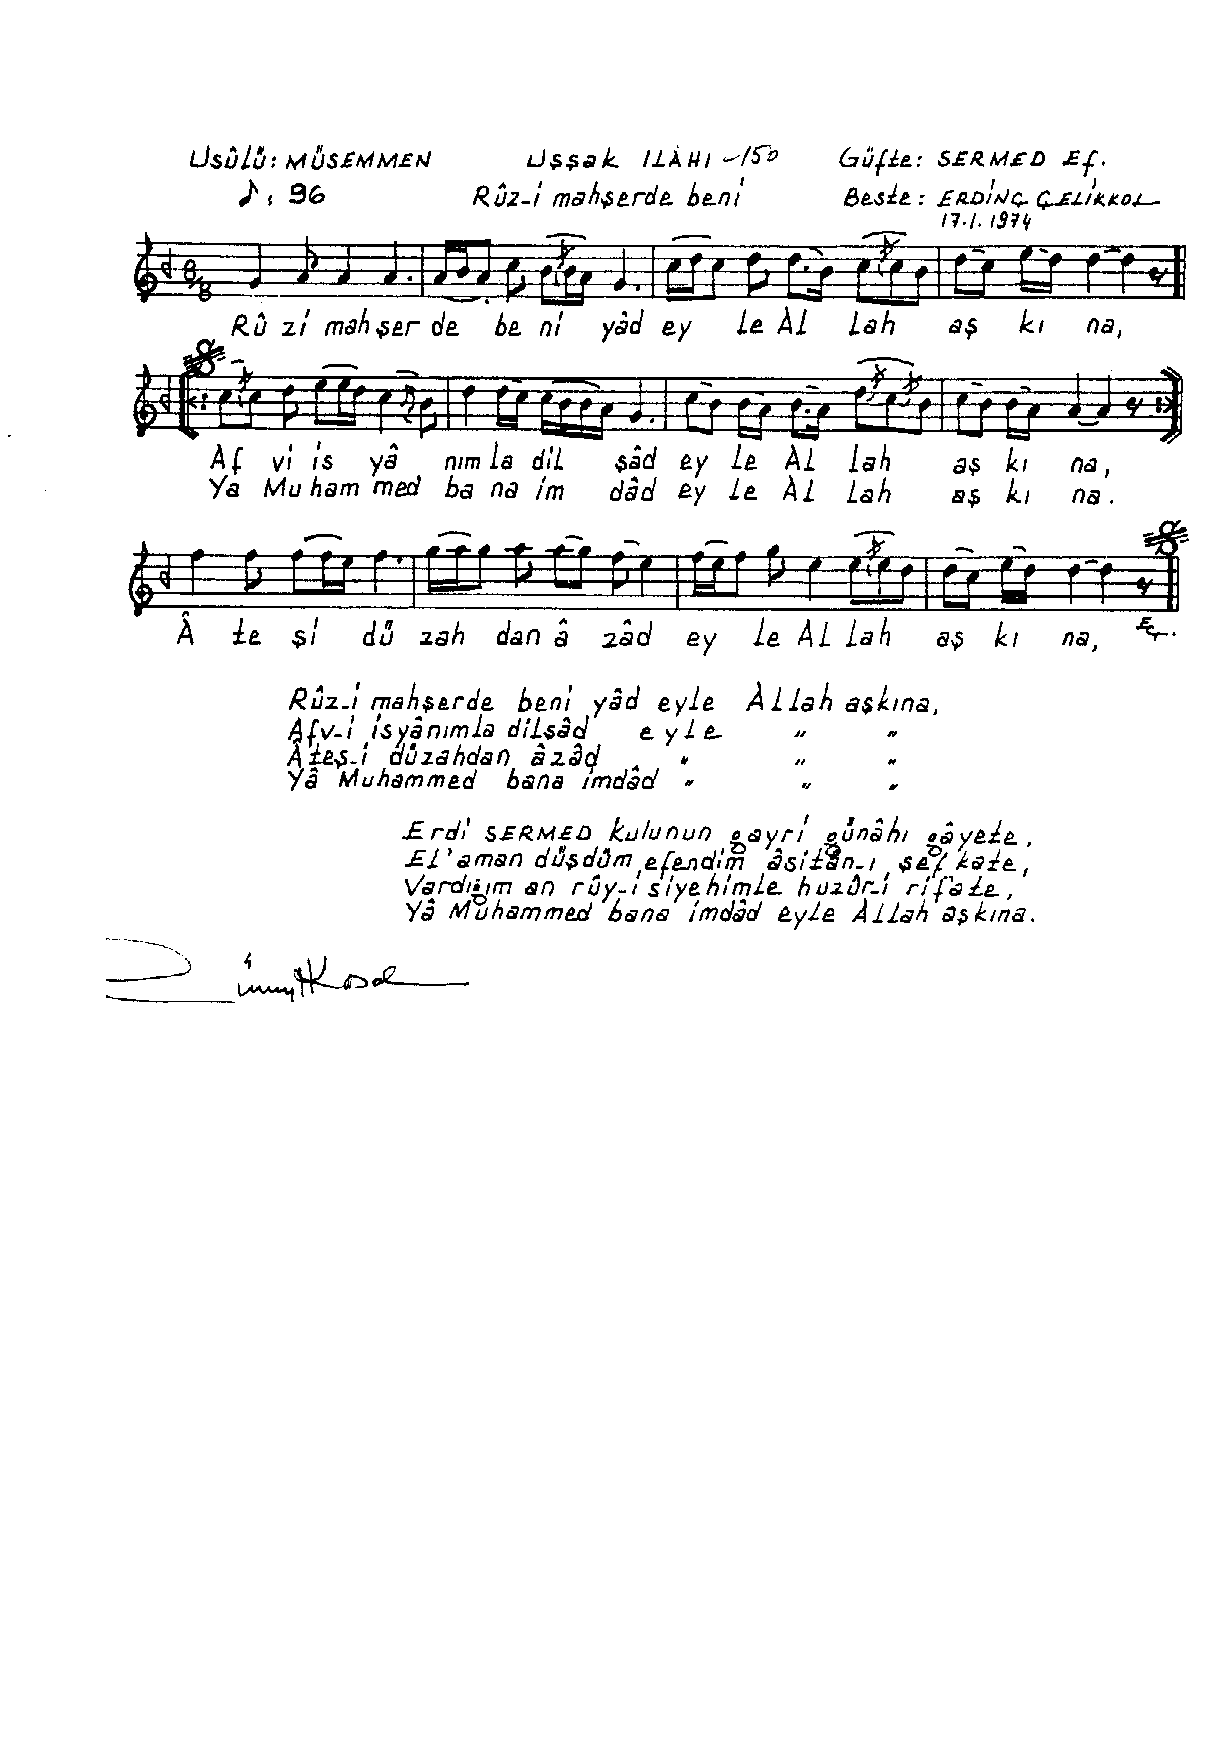 Usûlü: MÜSEMMEN Uşşak İLÂHİ -150 Güfte: SERMED Ef.
♪: 96 Rûz-i mahşerde beni Beste: ERDİNÇ ÇELİKKOL
17.1.1974
8/8
Rû zi mahşer de be ni yâd ey le Al lah aş kı na,
Af vi is yâ nım la dil şâd ey le Al lah aş kı na,
Ya Mu ham med ba na im dâd ey le Al lah aş kı na.
 te şi dû zah dan â zâd ey le Al lah aş kı na,
Rûz-i mahşerde beni yâd eyle Allah aşkına,
Afv-i isyânımla dilşâd eyle " "
Âteş-i dûzahdan âzâd " " "
Yâ Muhammed bana imdâd " " "
Erdi SERMED kulunun gayri günâhı gâyete,
El'aman düşdüm efendim âsitân-ı şefkate,
Vardığım an rûy-i siyehimle huzûr-i rifate,
Yâ Muhammed bana imdâd eyle Allah aşkına.